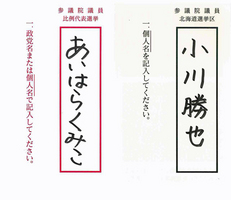 参議院議員
比例代表選挙
あいはらくみこ
一、政党名または個人名で記入してください。
参議院議員
北海道選挙区
小川勝也
一、個人名を記入してください。